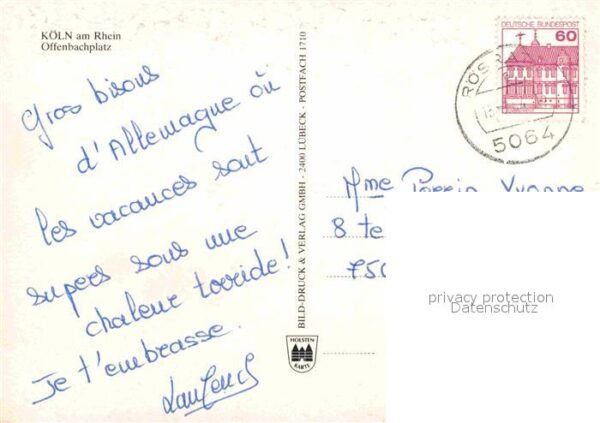 KÖLN am Rhein
Offenbachplatz
Gros bisous
d'Allemagne où
les vacances sont
supers sous une
chaleur torride!
Je t'embrasse.
BILD-DRUCK & VERLAG GMBH - 2400 LÜBECK - POSTFACH 1710
HOLSTEN
KARTE
DEUTSCHE BUNDESPOST
60
RÖSR
5064
Mme Perrin Yvonne
8 te
750
privacy protection
Datenschutz